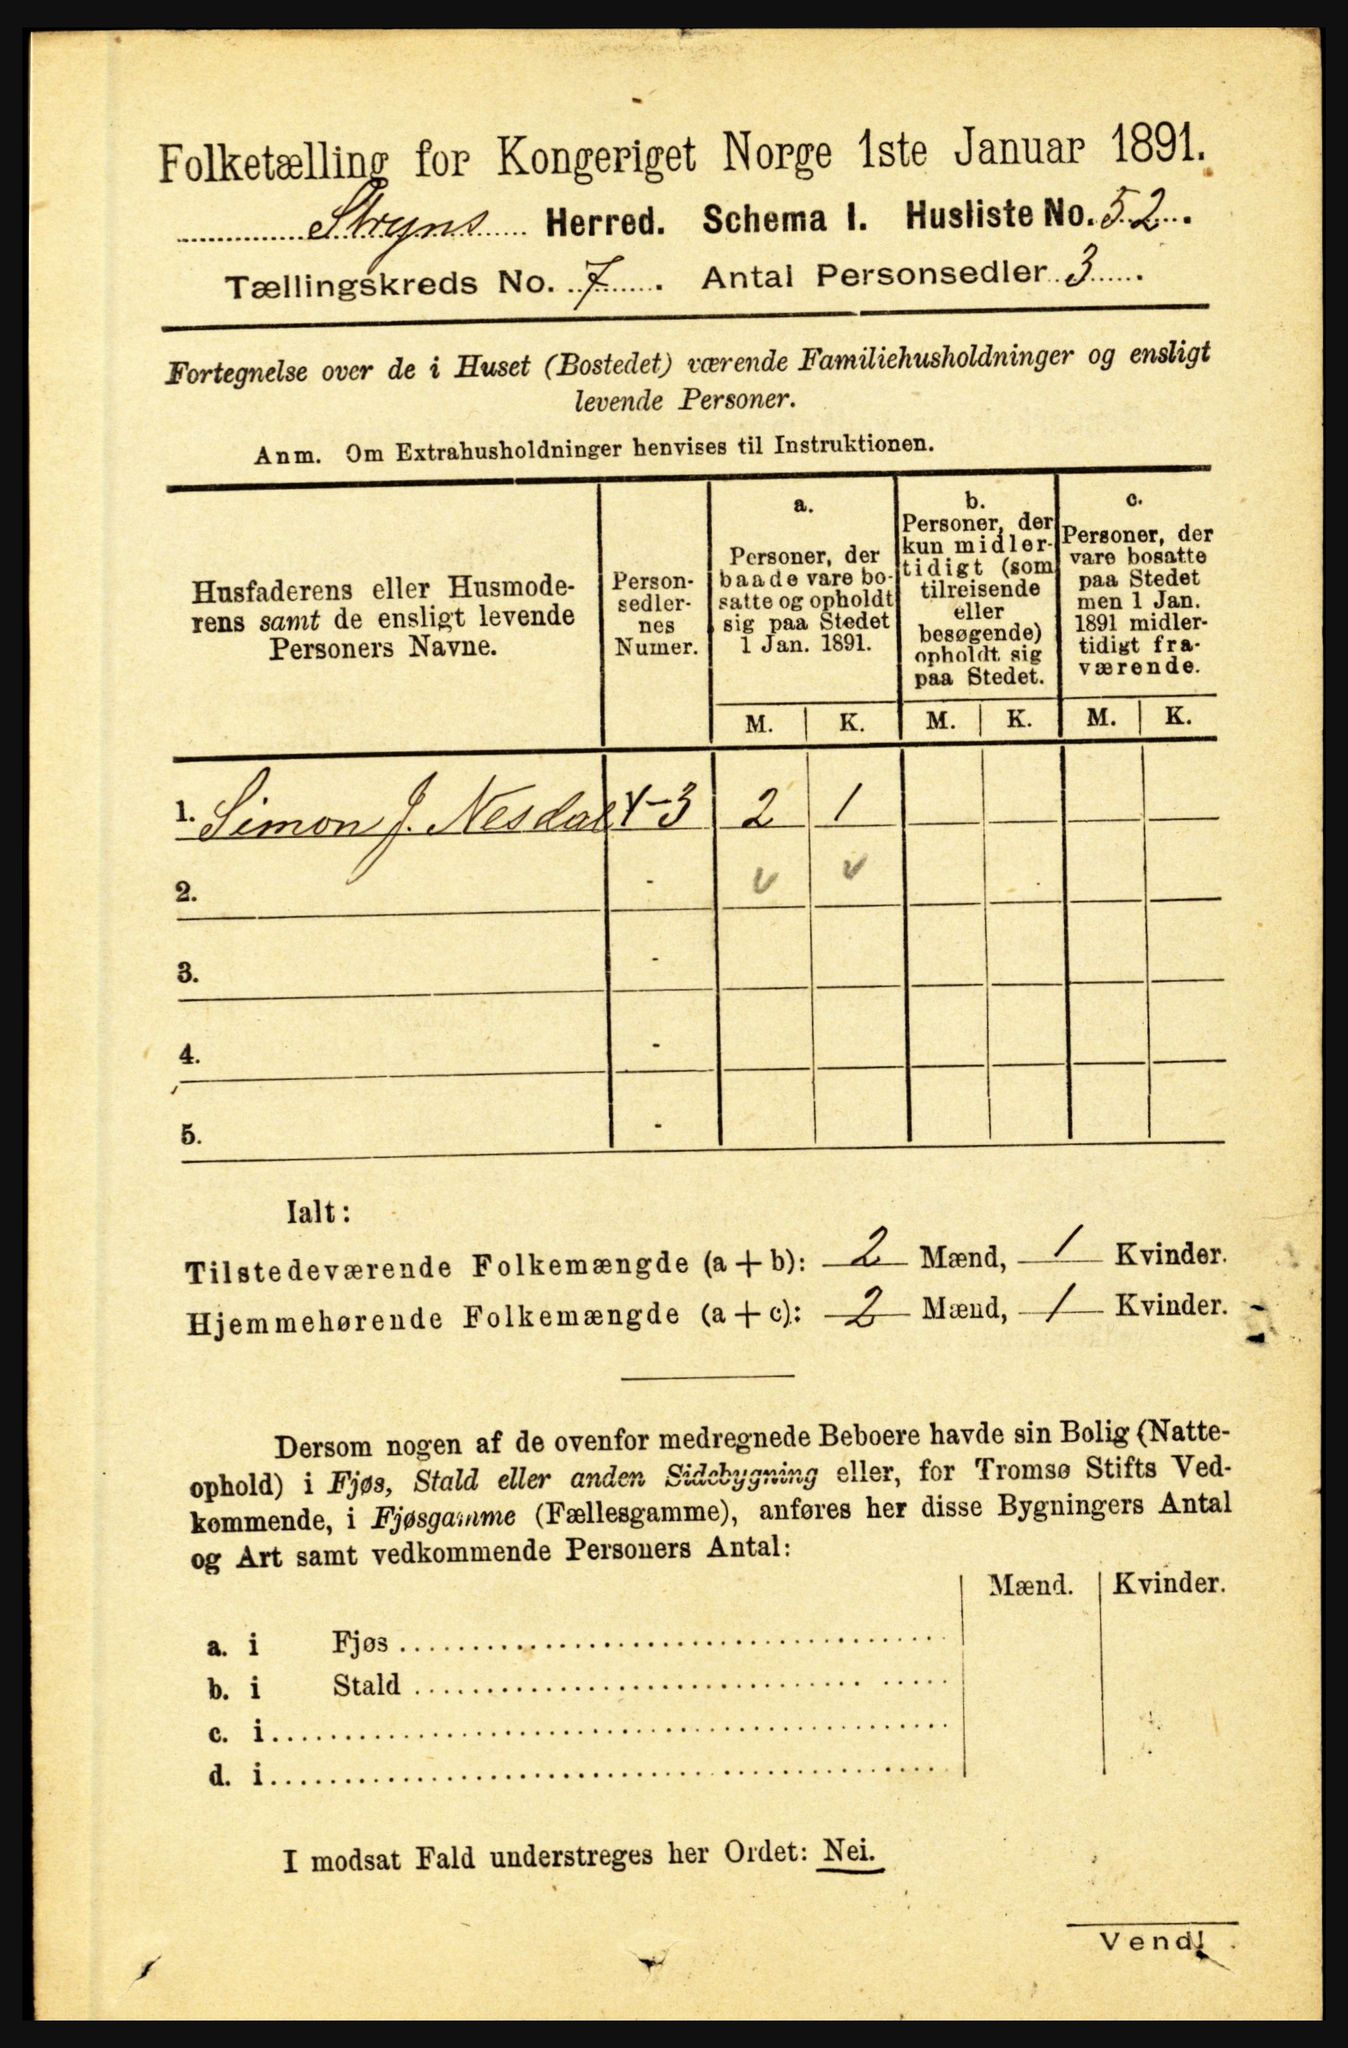 Folketælling for Kongeriget Norge 1ste Januar 1891.
Stryns Herred. Schema I. Husliste No. 52.
Tællingskreds No. 7. Antal Personsedler 3.
Fortegnelse over de i Huset (Bostedet) værende Familiehusholdninger og ensligt
levende Personer.
Anm. Om Extrahusholdninger henvises til Instruktionen.
Husfaderens eller Husmode-
rens samt de ensligt levende
Personers Navne.
Person-
sedler-
nes
Numer.
a.
Personer, der
baade vare bo-
satte og opholdt
sig paa Stedet
1 Jan. 1891.
b.
Personer, der
kun midler-
tidigt (som
tilreisende
eller
besøgende)
opholdt sig
paa Stedet.
c.
Personer, der
vare bosatte
paa Stedet
men 1 Jan.
1891 midler-
tidigt fra-
værende.
M. K. M. K. M. K.
1. Simon J. Nesdal 1-3 2 1
2. - v v
3. -
4. -
5. -
Ialt:
Tilstedeværende Folkemængde (a + b): 2 Mænd, 1 Kvinder.
Hjemmehørende Folkemængde (a + c): 2 Mænd, 1 Kvinder.
Dersom nogen af de ovenfor medregnede Beboere havde sin Bolig (Natte-
ophold) i Fjøs, Stald eller anden Sidebygning eller, for Tromsø Stifts Ved-
kommende, i Fjøsgamme (Fællesgamme), anføres her disse Bygningers Antal
og Art samt vedkommende Personers Antal:
Mænd. Kvinder.
a. i Fjøs
b. i Stald
c. i
d. i
I modsat Fald understreges her Ordet: Nei.
Vend!